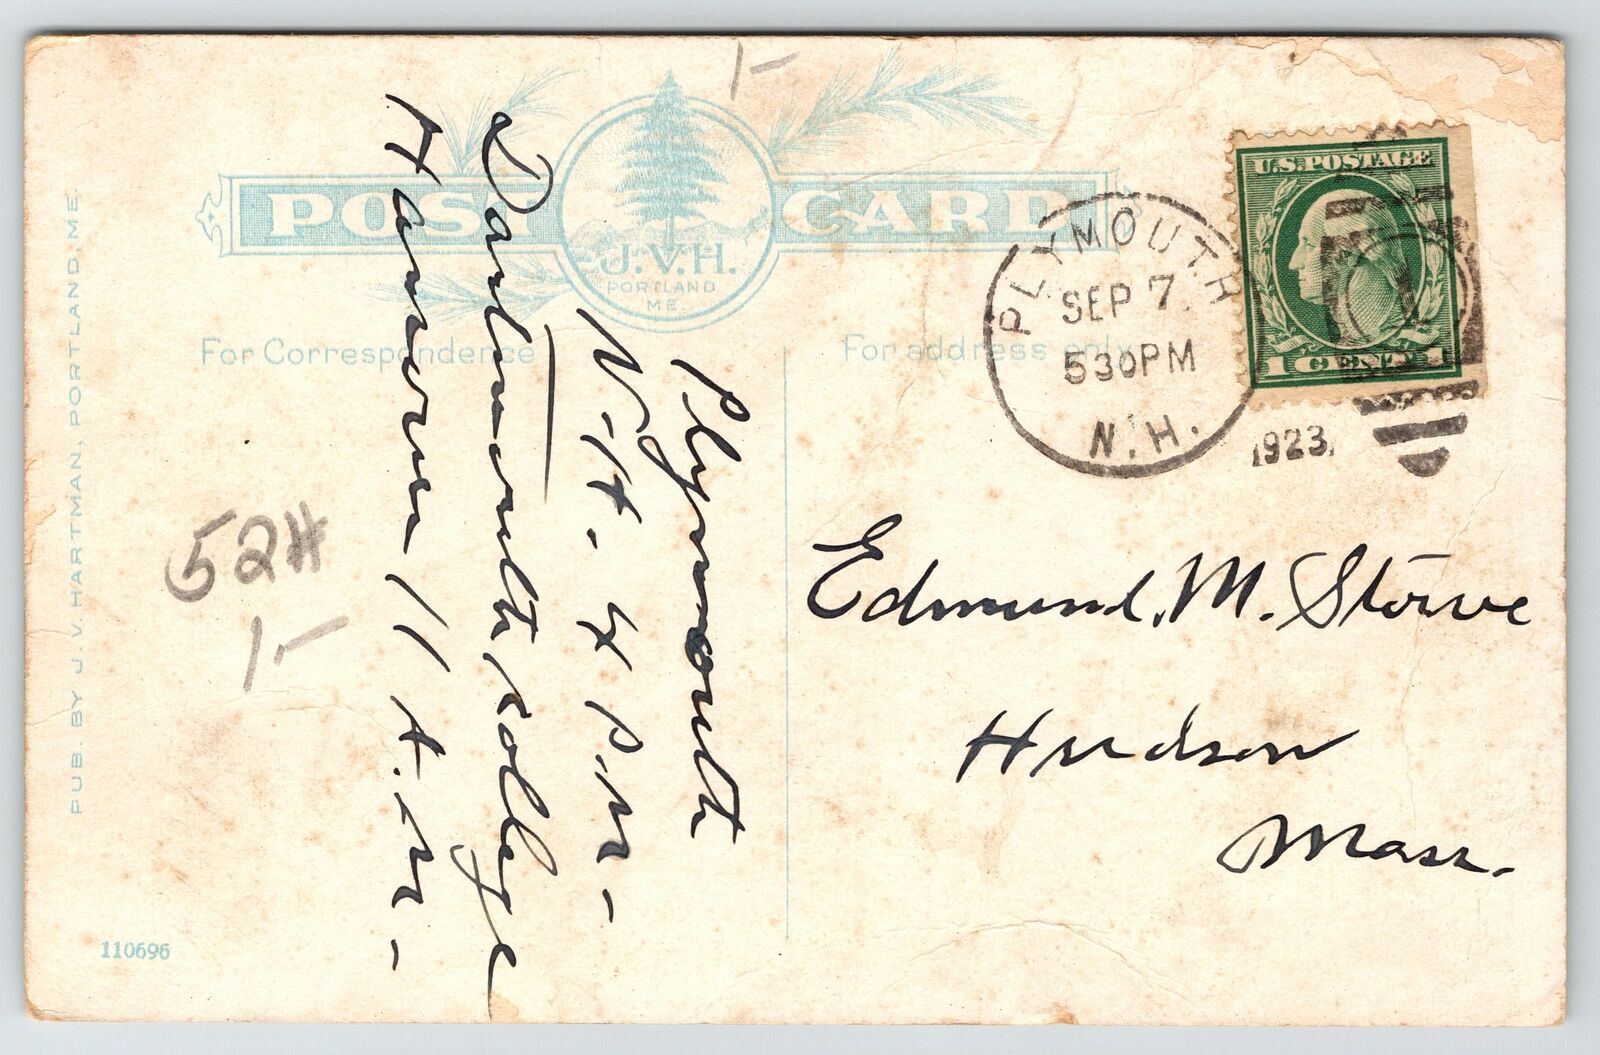 POST CARD
J.V.H.
PORTLAND
ME.
For Correspondence
For address only
PUB. BY J. V. HARTMAN, PORTLAND, ME.
110696
1-
524
1-
Plymouth
N-H. 4 P.M-
Dartmouth College
Hanover 11 A.M-
PLYMOUTH
SEP 7.
530PM
N.H.
1923
U.S.POSTAGE
1 CENT 1
Edmund. M. Stowe
Hudson
Mass.